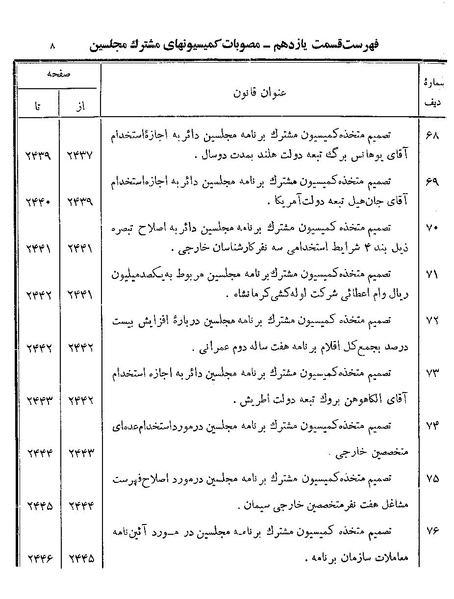 فهرست قسمت یازدهم ـ مصوبات کمیسیونهای مشترک مجلسین ۸
شمارۀ ردیف عنوان قانون صفحه
از تا
۶۸ تصمیم متخذه کمیسیون مشترک برنامه مجلسین دائر به اجازۀ استخدام
آقای یوهانس برگ تبعه دولت هلند بمدت دوسال . ۲۴۳۷ ۲۴۳۹
۶۹ تصمیم متخذه کمیسیون مشترک برنامه مجلسین دائر به اجازه استخدام
آقای جان‌هیل تبعه دولت آمریکا . ۲۴۳۹ ۲۴۴۰
۷۰ تصمیم متخذه کمیسیون مشترک برنامه مجلسین دائر به اصلاح تبصره
ذیل بند ۴ شرایط استخدامی سه نفر کارشناسان خارجی . ۲۴۴۱ ۲۴۴۱
۷۱ تصمیم متخذه کمیسیون مشترک برنامه مجلسین مربوط به یکصد میلیون
ریال وام اعطائی شرکت لوله‌کشی کرمانشاه . ۲۴۴۱ ۲۴۴۲
۷۲ تصمیم متخذه کمیسیون مشترک برنامه مجلسین دربارۀ افزایش بیست
درصد بجمع کل اقلام برنامه هفت ساله دوم عمرانی . ۲۴۴۲ ۲۴۴۲
۷۳ تصمیم متخذه کمیسیون مشترک برنامه مجلسین دائر به اجازه استخدام
آقای الکاهوهن بروک تبعه دولت اطریش . ۲۴۴۲ ۲۴۴۳
۷۴ تصمیم متخذه کمیسیون مشترک برنامه مجلسین درمورد استخدام عده‌ای
متخصصین خارجی . ۲۴۴۳ ۲۴۴۴
۷۵ تصمیم متخذه کمیسیون مشترک برنامه مجلسین درمورد اصلاح فهرست
مشاغل هفت نفر متخصصین خارجی سیمان . ۲۴۴۴ ۲۴۴۵
۷۶ تصمیم متخذه کمیسیون مشترک برنامه مجلسین در مورد آئین‌نامه
معاملات سازمان برنامه . ۲۴۴۵ ۲۴۴۶